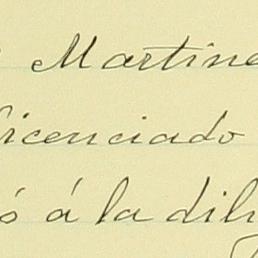 Martine
licenciado
ó á la dili